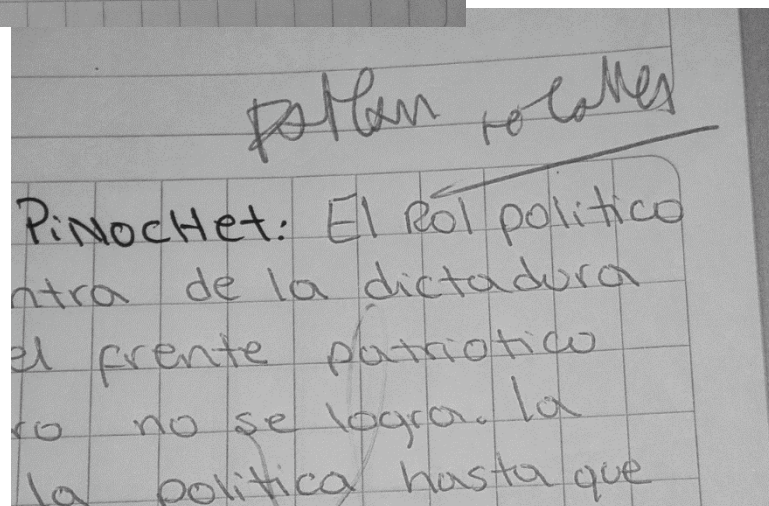 PiNocHet: El Rol politico
ntra de la dictadura
el frente patriotico
ro no se logra. la
la politica hasta que